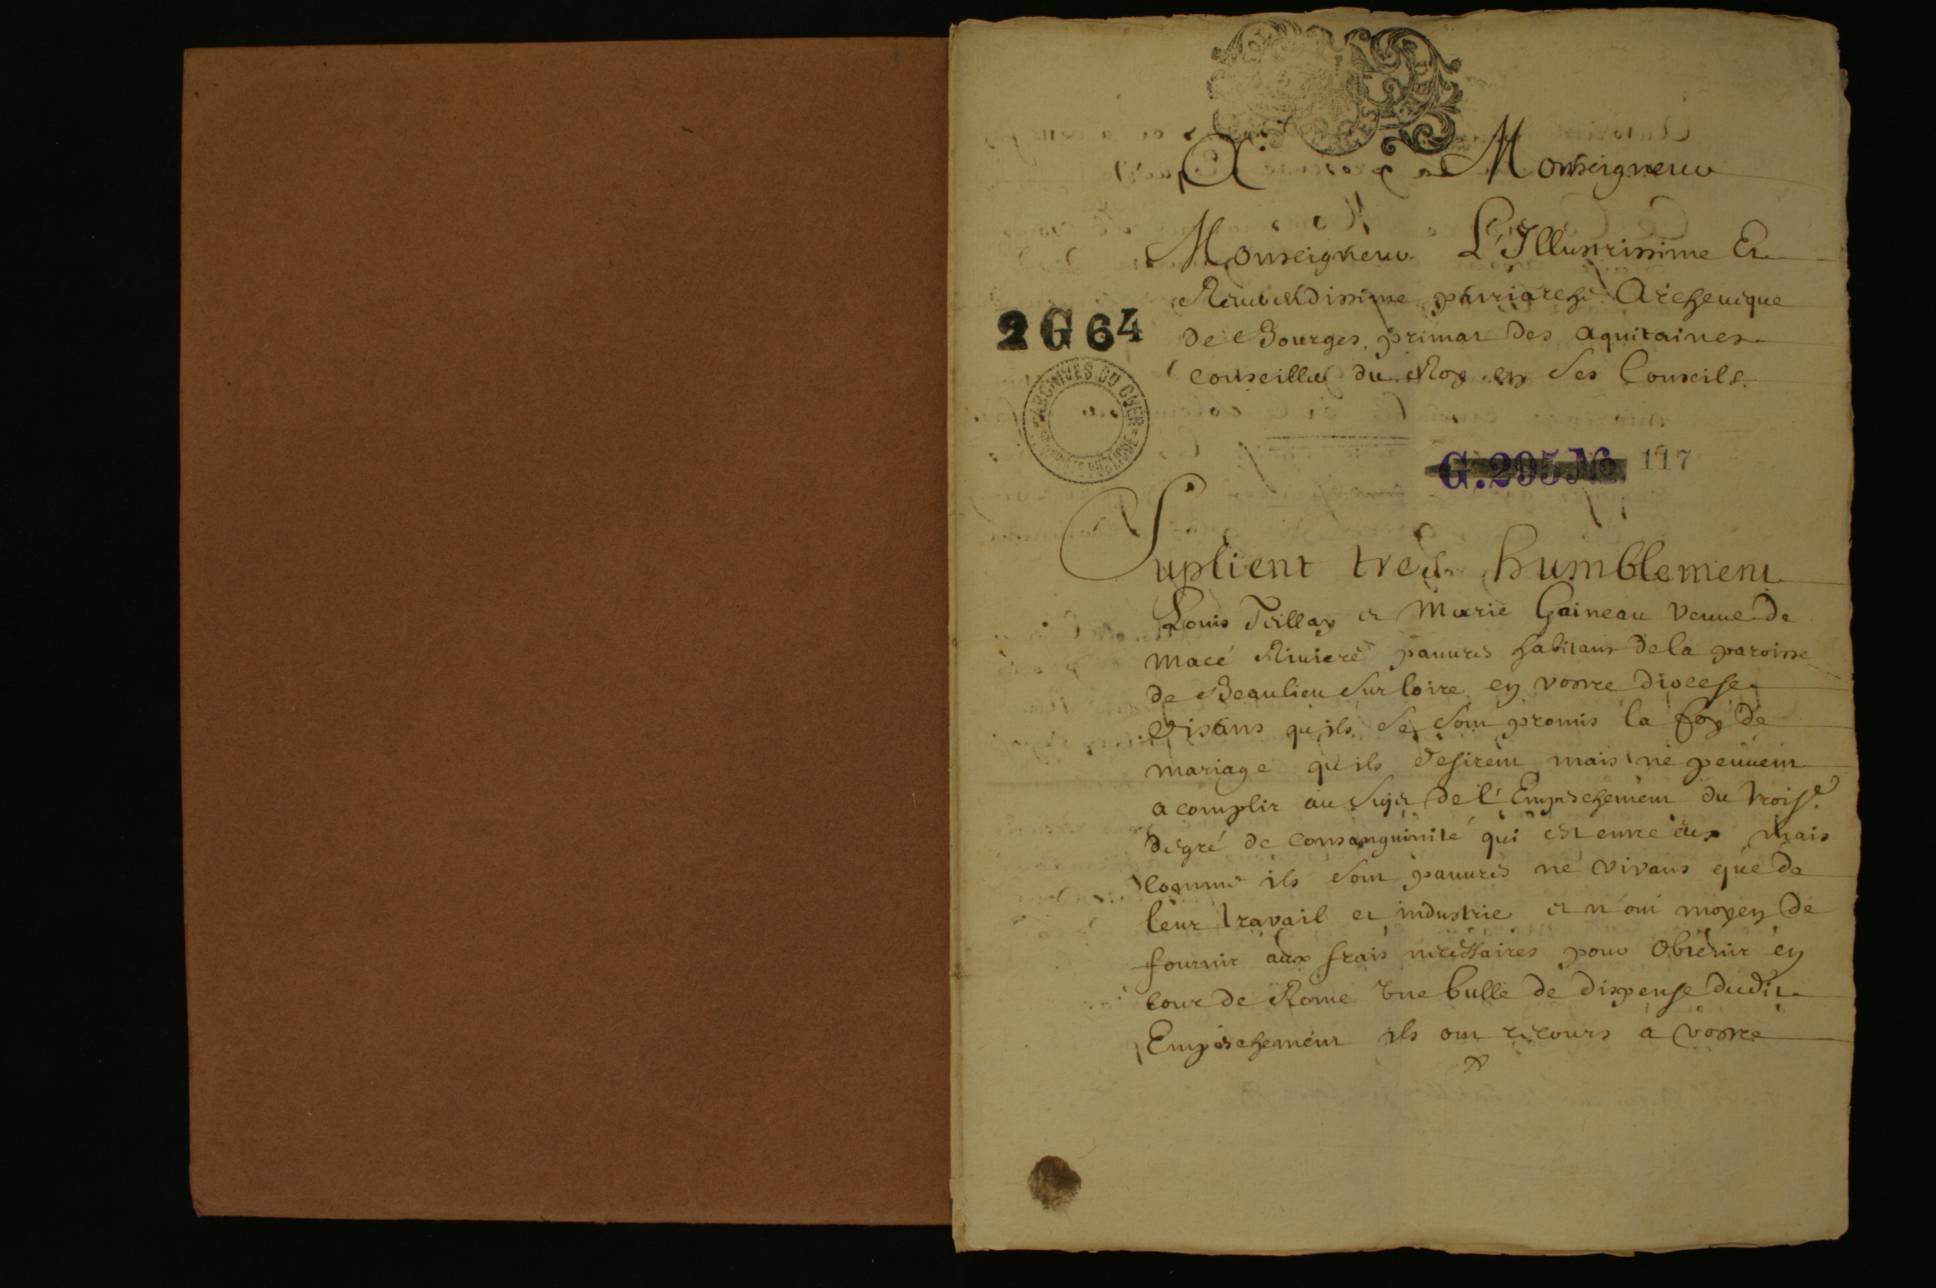 A Monseigneur
Monseigneur L'Illustrissime Et
Reverendissime patriarche Archeueque
de Bourges, primat des aquitaines
conseiller du Roy en Ses Conseils
2 G 64
ARCHIVES DU CHER
G. 295 No 117
Suplient tres humblement
Louis Teillay et Marie Gaineau veuue de
macé Riuiere pauures habitans de la paroisse
de Beaulieu sur loire en vostre diocese
Disans qu'ils se sont promis la foy de
mariage qu'ils desirent mais ne peuuent
acomplir au sujet de l'Empeschement du troise
degré de consanguinité qui est entre eux mais
comme ils sont pauures ne vivans que de
leur travail et industrie et n'ont moyen de
fournir aux frais necessaires pour obtenir en
cour de Rome une bulle de dispense dudit
Empeschement ils ont recours a vostre